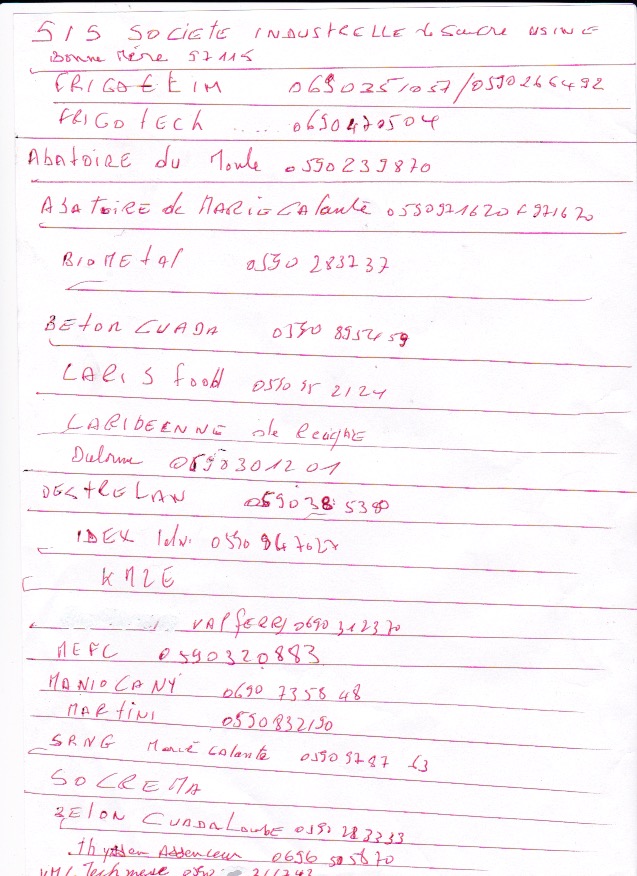 SIS SOCIETE INDUSTRELLE de Sucre USINE
Bonne Mère 97115
FRIGATEIM 0690351057/0590266492
FRIGOTECH ..... 0690470504
ABATOIRE du Moule 0590239870
ABATOIRE de MARIE GALANTE 0590971620 971670
BIOMETAL 0590 283737
BETON GUADA 0590 895459
CARIS food 0590 95 2124
CARIBEENNE de
0690301201
DESTRELAN 059038 5380
IDEX 0590 947027
KMZE
0690312370
MEFC 0590320883
MANIOCANY 0690 7358 48
MARTINI 0590832190
SRNG Marie Galante 0590 9787 63
SOCREMA
BETON GUADALOUPE 0590 283333
thyssen 0696 505870